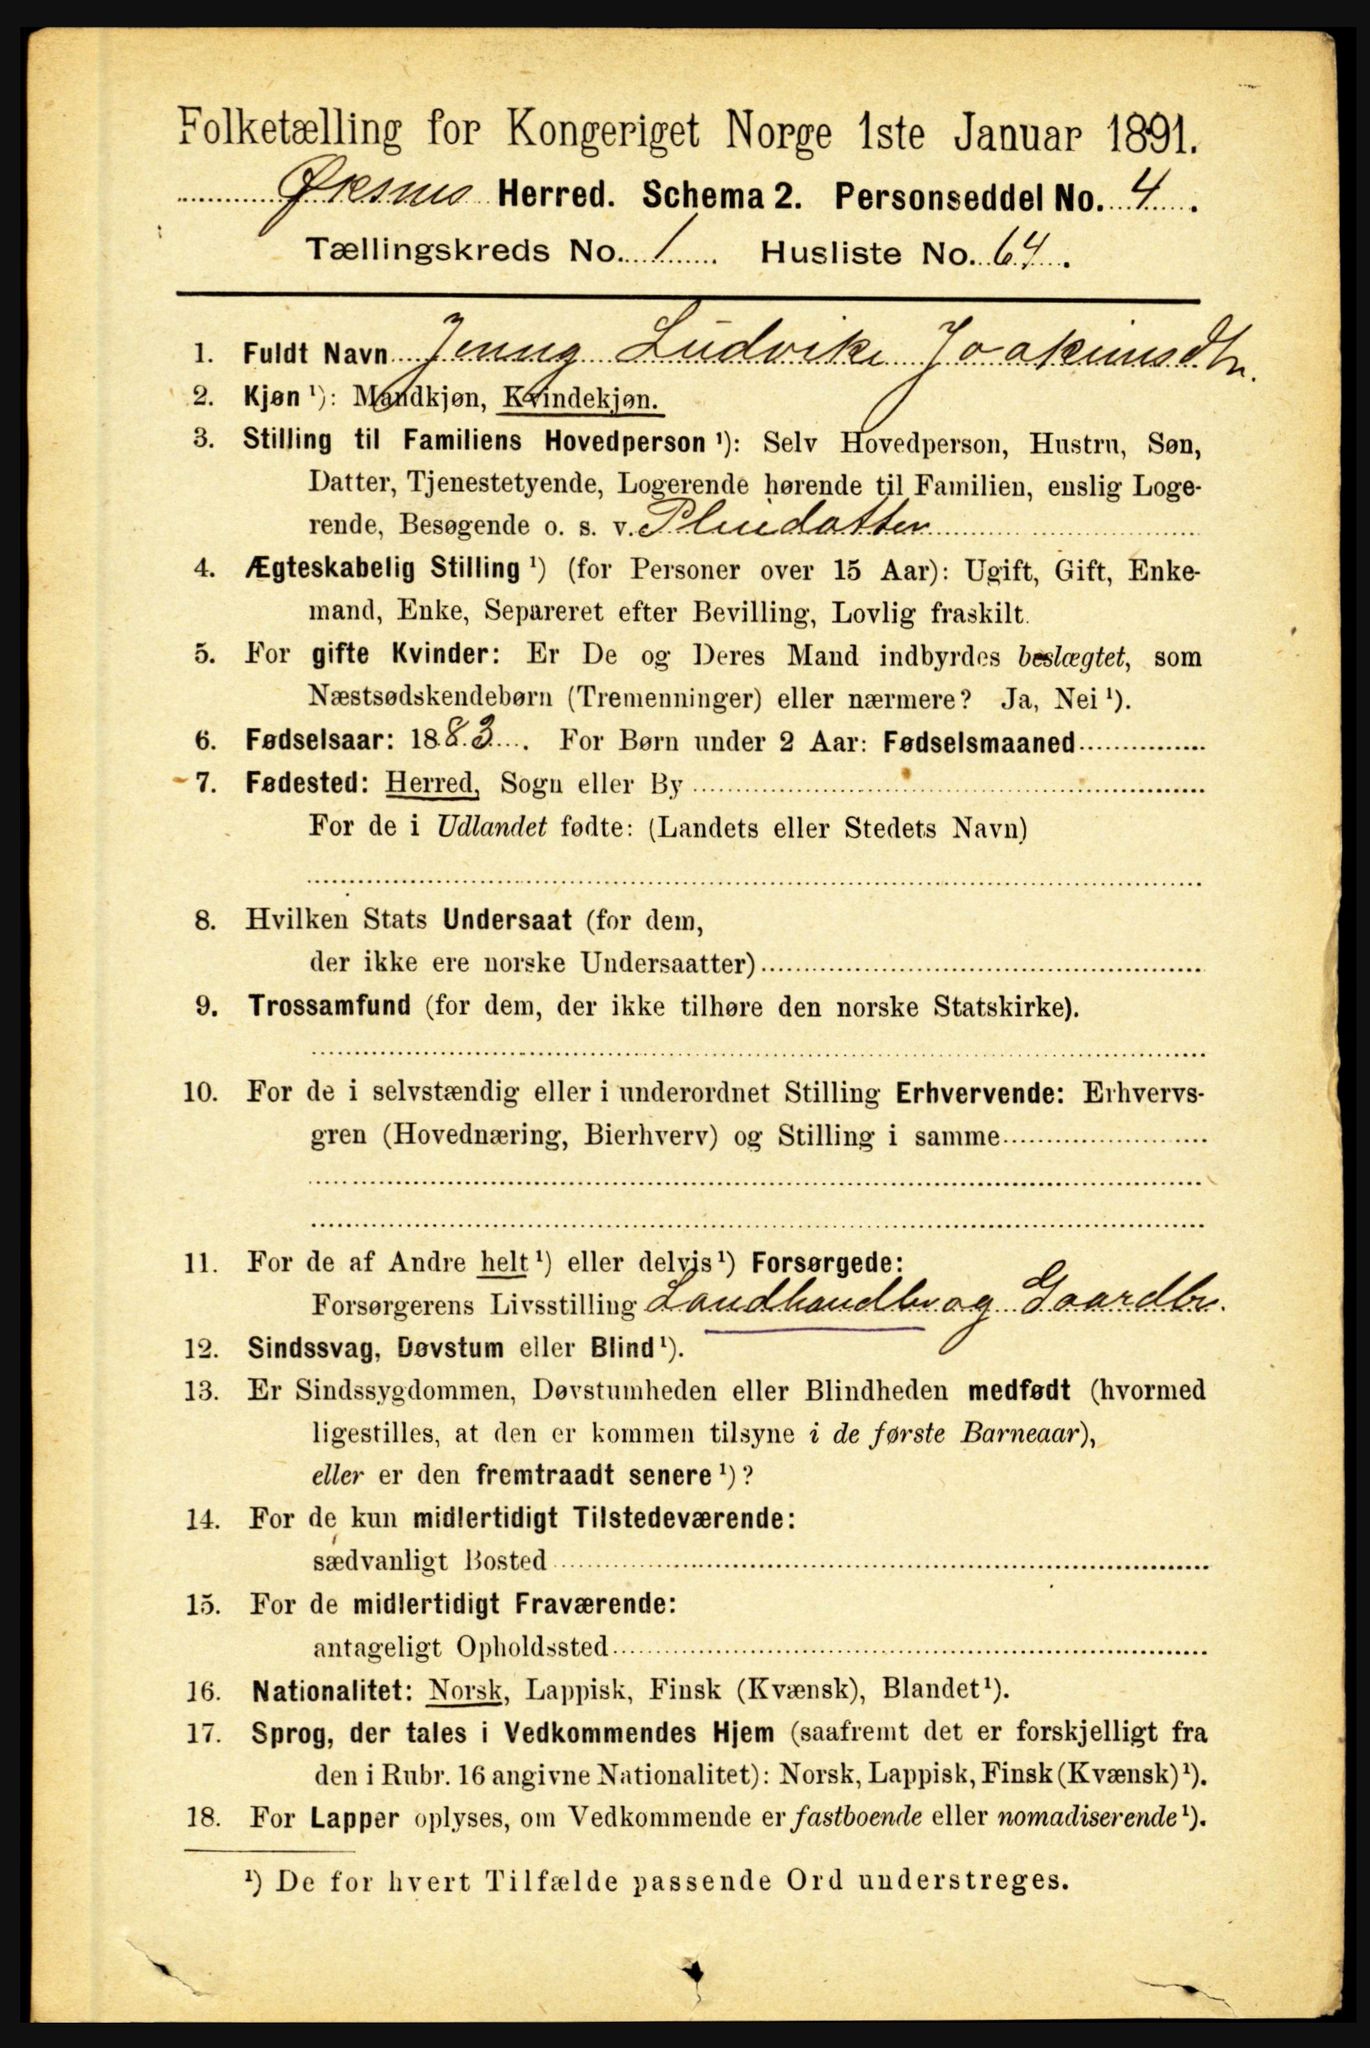 Folketælling for Kongeriget Norge 1ste Januar 1891.
Øksnes Herred. Schema 2. Personseddel No. 4.
Tællingskreds No. 1 Husliste No. 64.
1. Fuldt Navn Jenny Ludvike Joakimsdtr.
2. Kjøn ¹): Mandkjøn, Kvindekjøn.
3. Stilling til Familiens Hovedperson ¹): Selv Hovedperson, Hustru, Søn,
Datter, Tjenestetyende, Logerende hørende til Familien, enslig Loge-
rende, Besøgende o. s. v. Pleiedatter
4. Ægteskabelig Stilling ¹) (for Personer over 15 Aar): Ugift, Gift, Enke-
mand, Enke, Separeret efter Bevilling, Lovlig fraskilt.
5. For gifte Kvinder: Er De og Deres Mand indbyrdes beslægtet, som
Næstsødskendebørn (Tremenninger) eller nærmere? Ja, Nei ¹).
6. Fødselsaar: 1883. For Børn under 2 Aar: Fødselsmaaned
7. Fødested: Herred, Sogn eller By
For de i Udlandet fødte: (Landets eller Stedets Navn)
8. Hvilken Stats Undersaat (for dem,
der ikke ere norske Undersaatter)
9. Trossamfund (for dem, der ikke tilhøre den norske Statskirke).
10. For de i selvstændig eller i underordnet Stilling Erhvervende: Erhvervs-
gren (Hovednæring, Bierhverv) og Stilling i samme
11. For de af Andre helt ¹) eller delvis ¹) Forsørgede:
Forsørgerens Livsstilling Landhandler og Gaardbr.
12. Sindssvag, Døvstum eller Blind ¹).
13. Er Sindssygdommen, Døvstumheden eller Blindheden medfødt (hvormed
ligestilles, at den er kommen tilsyne i de første Barneaar),
eller er den fremtraadt senere ¹)?
14. For de kun midlertidigt Tilstedeværende:
sædvanligt Bosted
15. For de midlertidigt Fraværende:
antageligt Opholdssted
16. Nationalitet: Norsk, Lappisk, Finsk (Kvænsk), Blandet ¹).
17. Sprog, der tales i Vedkommendes Hjem (saafremt det er forskjelligt fra
den i Rubr. 16 angivne Nationalitet): Norsk, Lappisk, Finsk (Kvænsk) ¹).
18. For Lapper oplyses, om Vedkommende er fastboende eller nomadiserende ¹).
¹) De for hvert Tilfælde passende Ord understreges.